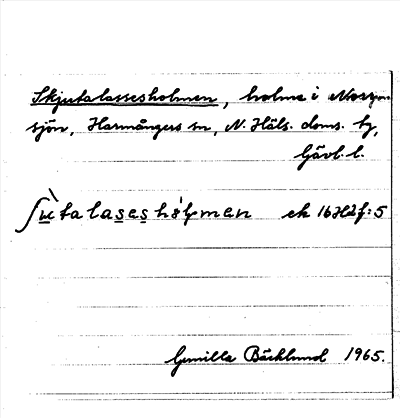 Skjutalassesholmen, holme i
sjön, Harmångers sn, N. Häls. doms. tg,
Gävl. l.
ʃùtalaseshòlmen ek 16H2f:5
Gunilla Bäcklund 1965.